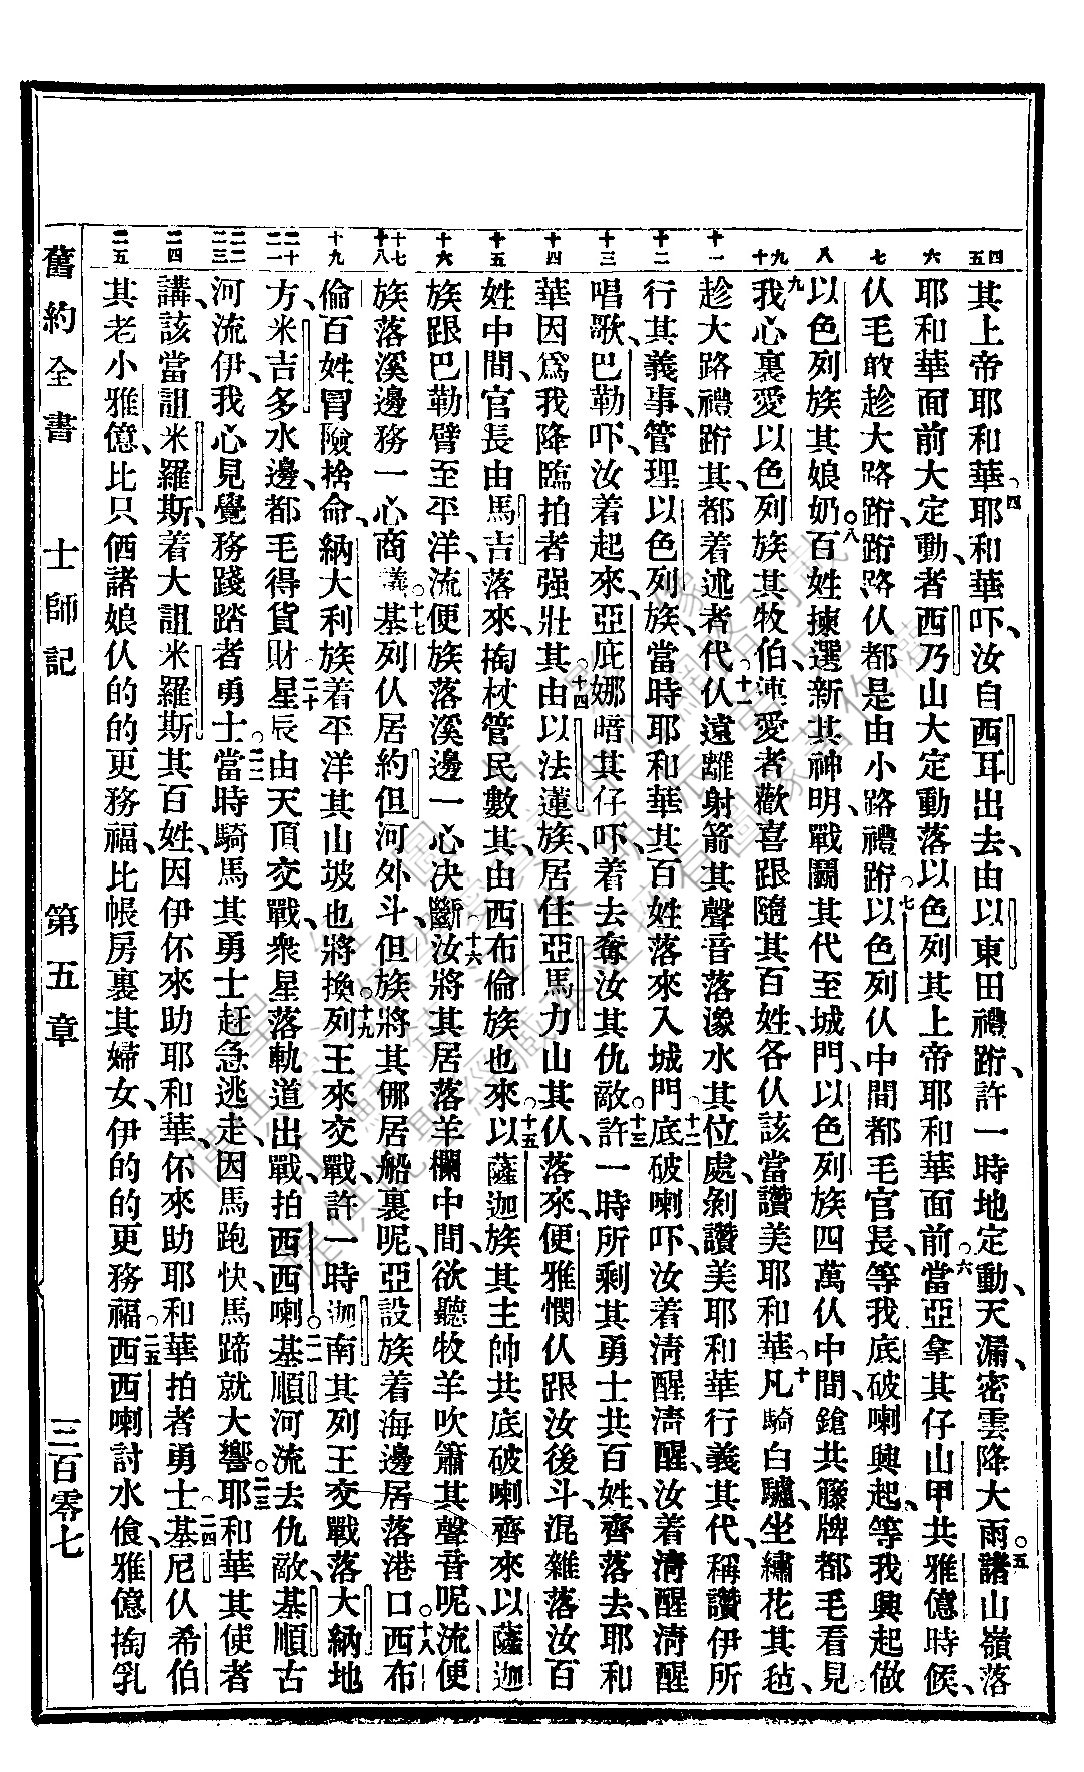 其上帝耶和華、四耶和華吓、汝自西耳出去、由以東田禮跡、許一時地定動、天漏、密雲降大雨。五諸山嶺落
耶和華面前大定動、者西乃山大定動落以色列其上帝耶和華面前。六當亞拿其仔山甲共雅億時候、
仈毛敢趁大路跡、跡路仈都是由小路禮跡。七以色列仈中間都毛官長、等我底破喇興起、等我興起做
以色列族其娘奶。八百姓揀選新其神明、戰鬭其代至城門、以色列族四萬仈中間、鎗共籐牌都毛看見
九我心裏愛以色列族其牧伯、連愛者歡喜跟隨其百姓、各仈該當讚美耶和華。十凡騎白驢、坐繡花其毡、
趁大路禮跡其、都着述者代。十一仈遠離射箭其聲音落濠水其位處、剝讚美耶和華行義其代、稱讚伊所
行其義事、管理以色列族、當時耶和華其百姓落來入城門。十二底破喇吓、汝着清醒清醒、汝着清醒清醒
唱歌、巴勒吓、汝着起來、亞庇娜暗其仔吓、着去奪汝其仇敵。十三許一時所剩其勇士共百姓、齊落去、耶和
華因爲我降臨拍者强壯其。十四由以法蓮族、居住亞馬力山其仈、落來、便雅憫仈跟汝後斗、混雜落汝百
姓中間、官長由馬吉落來、掏杖管民數其、由西布倫族也來。十五以薩迦族其主帥共底破喇齊來、以薩迦
族跟巴勒臂至平洋、流便族落溪邊一心決斷。十六汝將其居落羊欄中間、欲聽牧羊吹簫其聲音呢、流便
族落溪邊務一心商議。十七基列仈居約但河外斗、但族將其倻居船裏呢、亞設族着海邊居落港口。十八西布
倫百姓冒險捨命、納大利族着平洋其山坡也將換。十九列王來交戰、許一時迦南其列王交戰落大納地
方、米吉多水邊、都毛得貨財。二十星辰由天頂交戰、衆星落軌道出戰拍西西喇。二一基順河流去仇敵、基順古
河流伊、我心見覺務踐踏者勇士。二二當時騎馬其勇士赶急逃走、因馬跑快、馬蹄就大響。二三耶和華其使者
講、該當詛米羅斯、着大詛米羅斯其百姓、因伊伓來助耶和華、伓來助耶和華拍者勇士。二四基尼仈希伯
其老小雅億、比只𠲥諸娘仈的的更務福、比帳房裏其婦女、伊的的更務福。二五西西喇討水飡、雅億掏乳
四 五
六
七
八
九 十
十一
十二
十三
十四
十五
十六
十七 十八
十九
二十 二一
二二 二三
二四
二五
舊約全書　士師記　第五章　三百零七